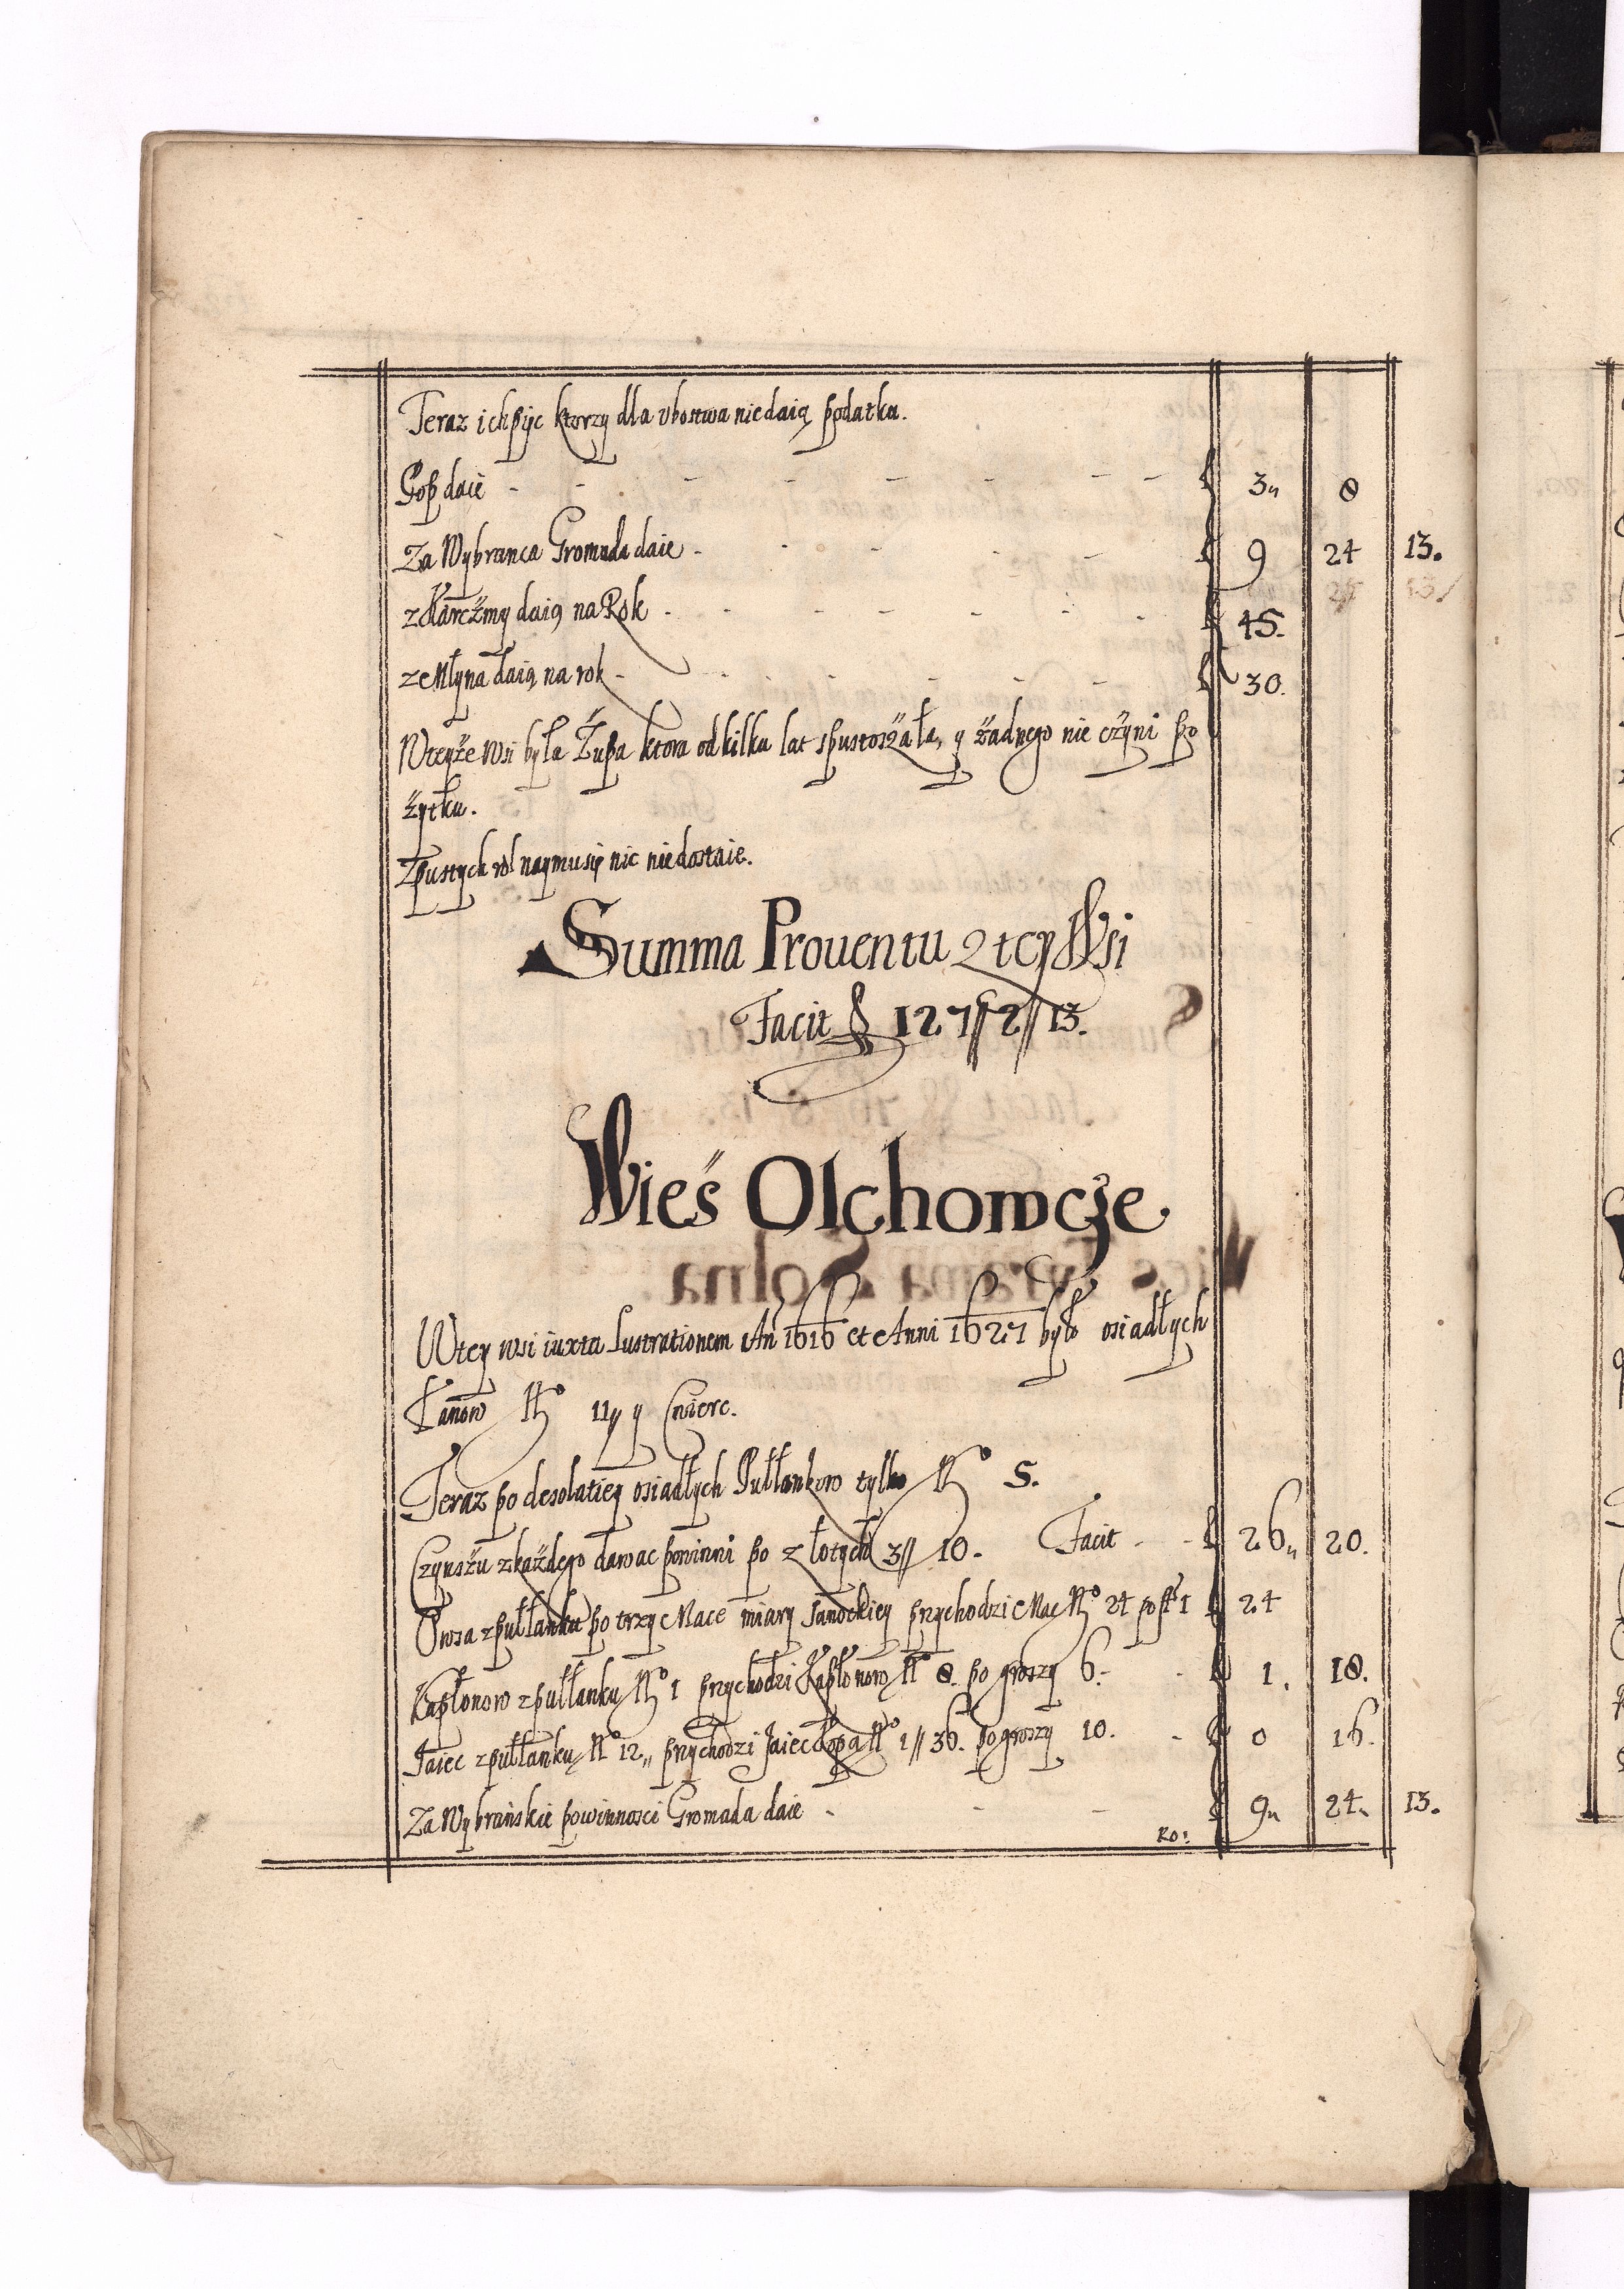 Teraz ich pięc ktorzy dla vbostwa nie daią podatku.
Pop daie - - - 3 8
Za Wybranca Gromada daie - - - 9 24 13.
z Karcżmy daią na Rok - - - 45.
ze Młyna daią na rok - - - 30.
Wteyże wsi była Żupa ktora od kilku lat spustoszała, y żadnego nie czyni po
żytku.
Zpustych rol naymu się nic nie dostaie.
Summa Prouentu z tey Wsi
Facit 127//2//13.
Wieś Olchowcze
Wtey wsi iuxta Lustrationem An 1616 et Anni 1627 było osiadłych
Łanow No 11 y Cwierc.
Teraz po desolatiey osiadłych Pułłankow tylko No
Czynszu z każdego dawac powinni po złotych 3// 10. Facit - - 26 20.
Owsa z pułłanku po trzy Mace miary Sanockiey przychodzi Mac No 24 po fl 1 24
Kapłonow z pułłanku No 1 przychodzi Kapłonow No 8. po groszy 6. - 1. 18.
Jaiec z pułłanku No 12 przychodzi Jaiec kopa No 1//36. po groszy 10. - 0 16.
Za Wybrańskie powinnosci Gromada daie - - - 9 24 13.